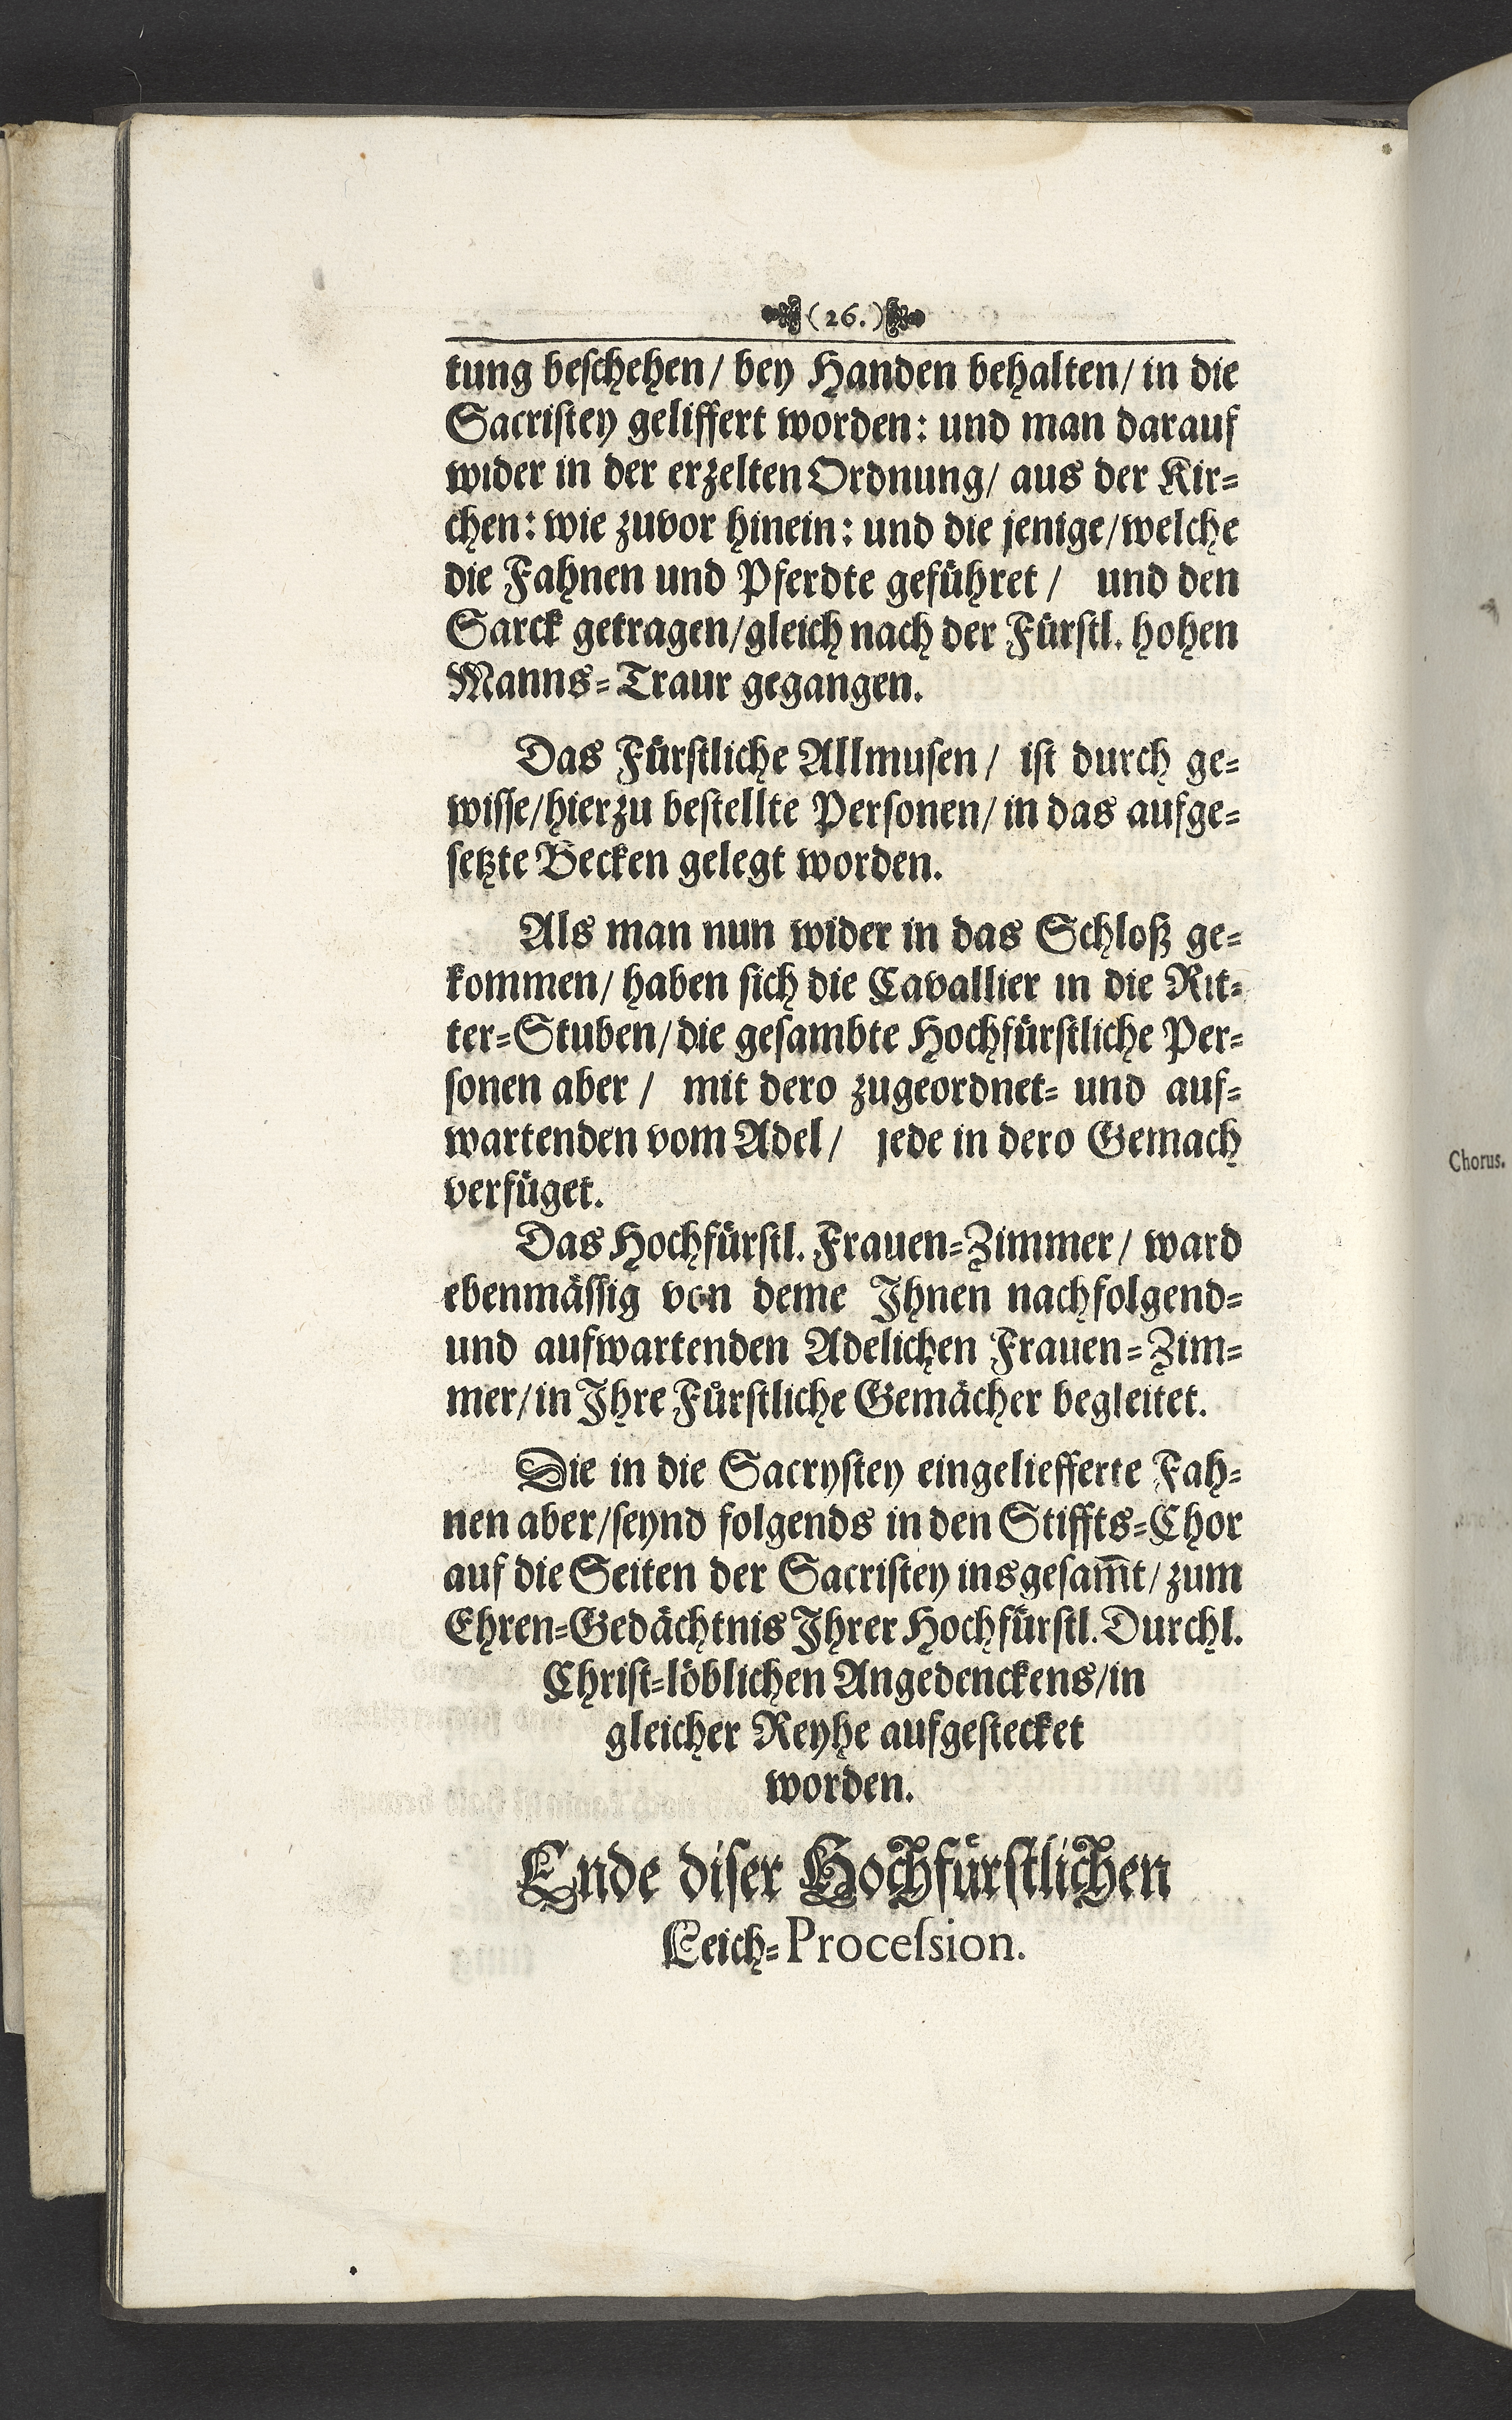 (26.)
tung beschehen/ bey Handen behalten/ in die
Sacristey geliffert worden: und man darauf
wider in der erzelten Ordnung/ aus der Kir=
chen: wie zuvor hinein: und die jenige/welche
die Fahnen und Pferdte geführet/ und den
Sarck getragen/gleich nach der Fürstl. hohen
Manns=Traur gegangen.
Das Fürstliche Allmusen/ ist durch ge=
wisse/hierzu bestellte Personen/ in das aufge=
setzte Becken gelegt worden.
Als man nun wider in das Schloß ge=
kommen/ haben sich die Cavallier in die Rit=
ter=Stuben/die gesambte Hochfürstliche Per=
sonen aber/ mit dero zugeordnet= und auf=
wartenden vom Adel/ jede in dero Gemach
verfüget.
Das Hochfürstl. Frauen=Zimmer/ ward
ebenmässig von deme Ihnen nachfolgend=
und aufwartenden Adelichen Frauen=Zim=
mer/in Ihre Fürstliche Gemächer begleitet.
Die in die Sacrystey eingeliefferte Fah=
nen aber/seynd folgends in den Stiffts=Chor
auf die Seiten der Sacristey insgesam̅t/zum
Ehren=Gedächtnis Ihrer Hochfürstl. Durchl.
Christ=löblichen Angedenckens/in
gleicher Reyhe aufgestecket
worden.
Ende diser Hochfürstlichen
Leich=Procession.
Chorus.